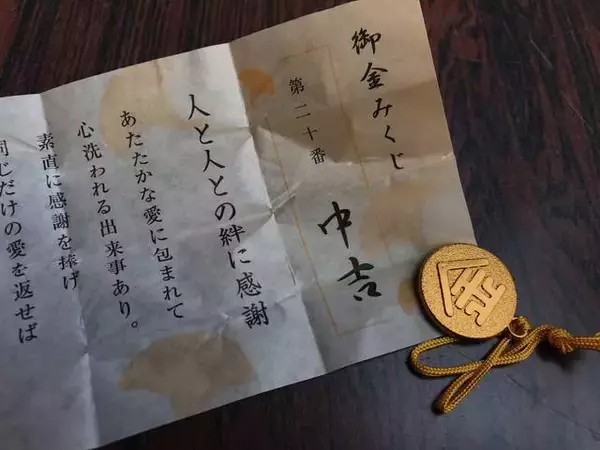 御金みくじ
第二十番
中吉
人と人との絆に感謝
あたたかな愛に包まれて
心洗われる出来事あり。
素直に感謝を捧げ
同じだけの愛を返せば
金